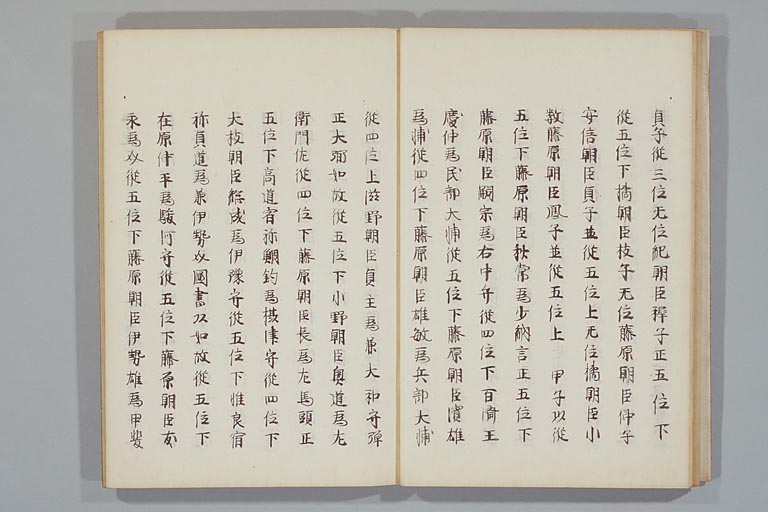 貞子從三位无位紀朝臣種子正五位下
從五位下橘朝臣枝子无位藤原朝臣仲子
安倍朝臣貞子並從五位上无位橘朝臣小
数藤原朝臣鳳子並從五位上 甲子以從
五位下藤原朝臣秋常為少納言正五位下
藤原朝臣嗣宗為右中弁從四位下百濟王
慶仲為民部大輔從五位下藤原朝臣濱雄
為 從四位下藤原朝臣雄敏為兵部大輔
從四位上滋野朝臣貞主為兼大和守彈
正大弼如故從五位下小野朝臣興道為左
衛門佐從四位下藤原朝臣長為左馬頭正
五位下高道宿祢鯛釣為攝津守從四位下
大枝朝臣総成為伊豫守從五位下惟良宿
祢貞道為兼伊勢 國書 如故從五位下
在原仲平為駿河守從五位下藤原朝臣
永為 從五位下藤原朝臣伊勢雄為甲斐